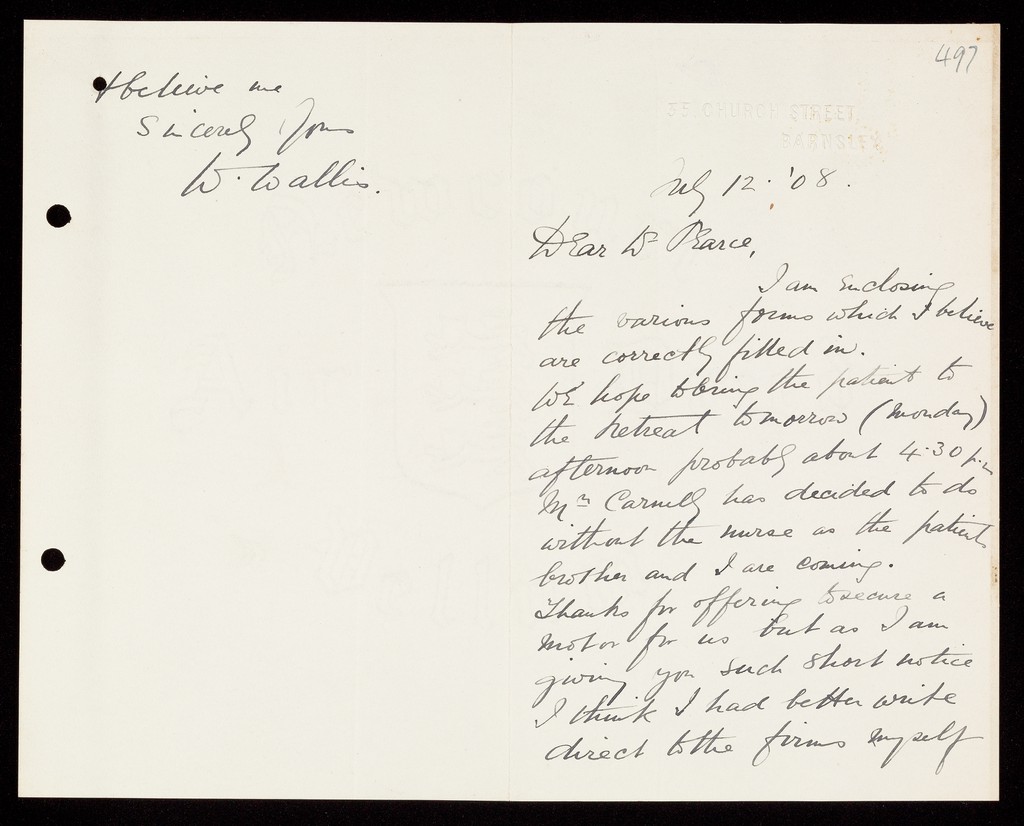 497
35, CHURCH STREET,
BARNSLEY.
July 12. '08.
Dear Dr Pearce,
I am enclosing
the various forms which I believe
are correctly filled in.
We hope to bring the patient to
the Retreat tomorrow (Monday)
afternoon probably about 4.30 p.m
Mrs Carnelly has decided to do
without the nurse as the patients
brother and I are coming.
Thanks for offering to secure a
motor for us but as I am
giving you such short notice
I think I had better write
direct to the firms myself
& believe me
Sincerely Yours
W. Wallis.